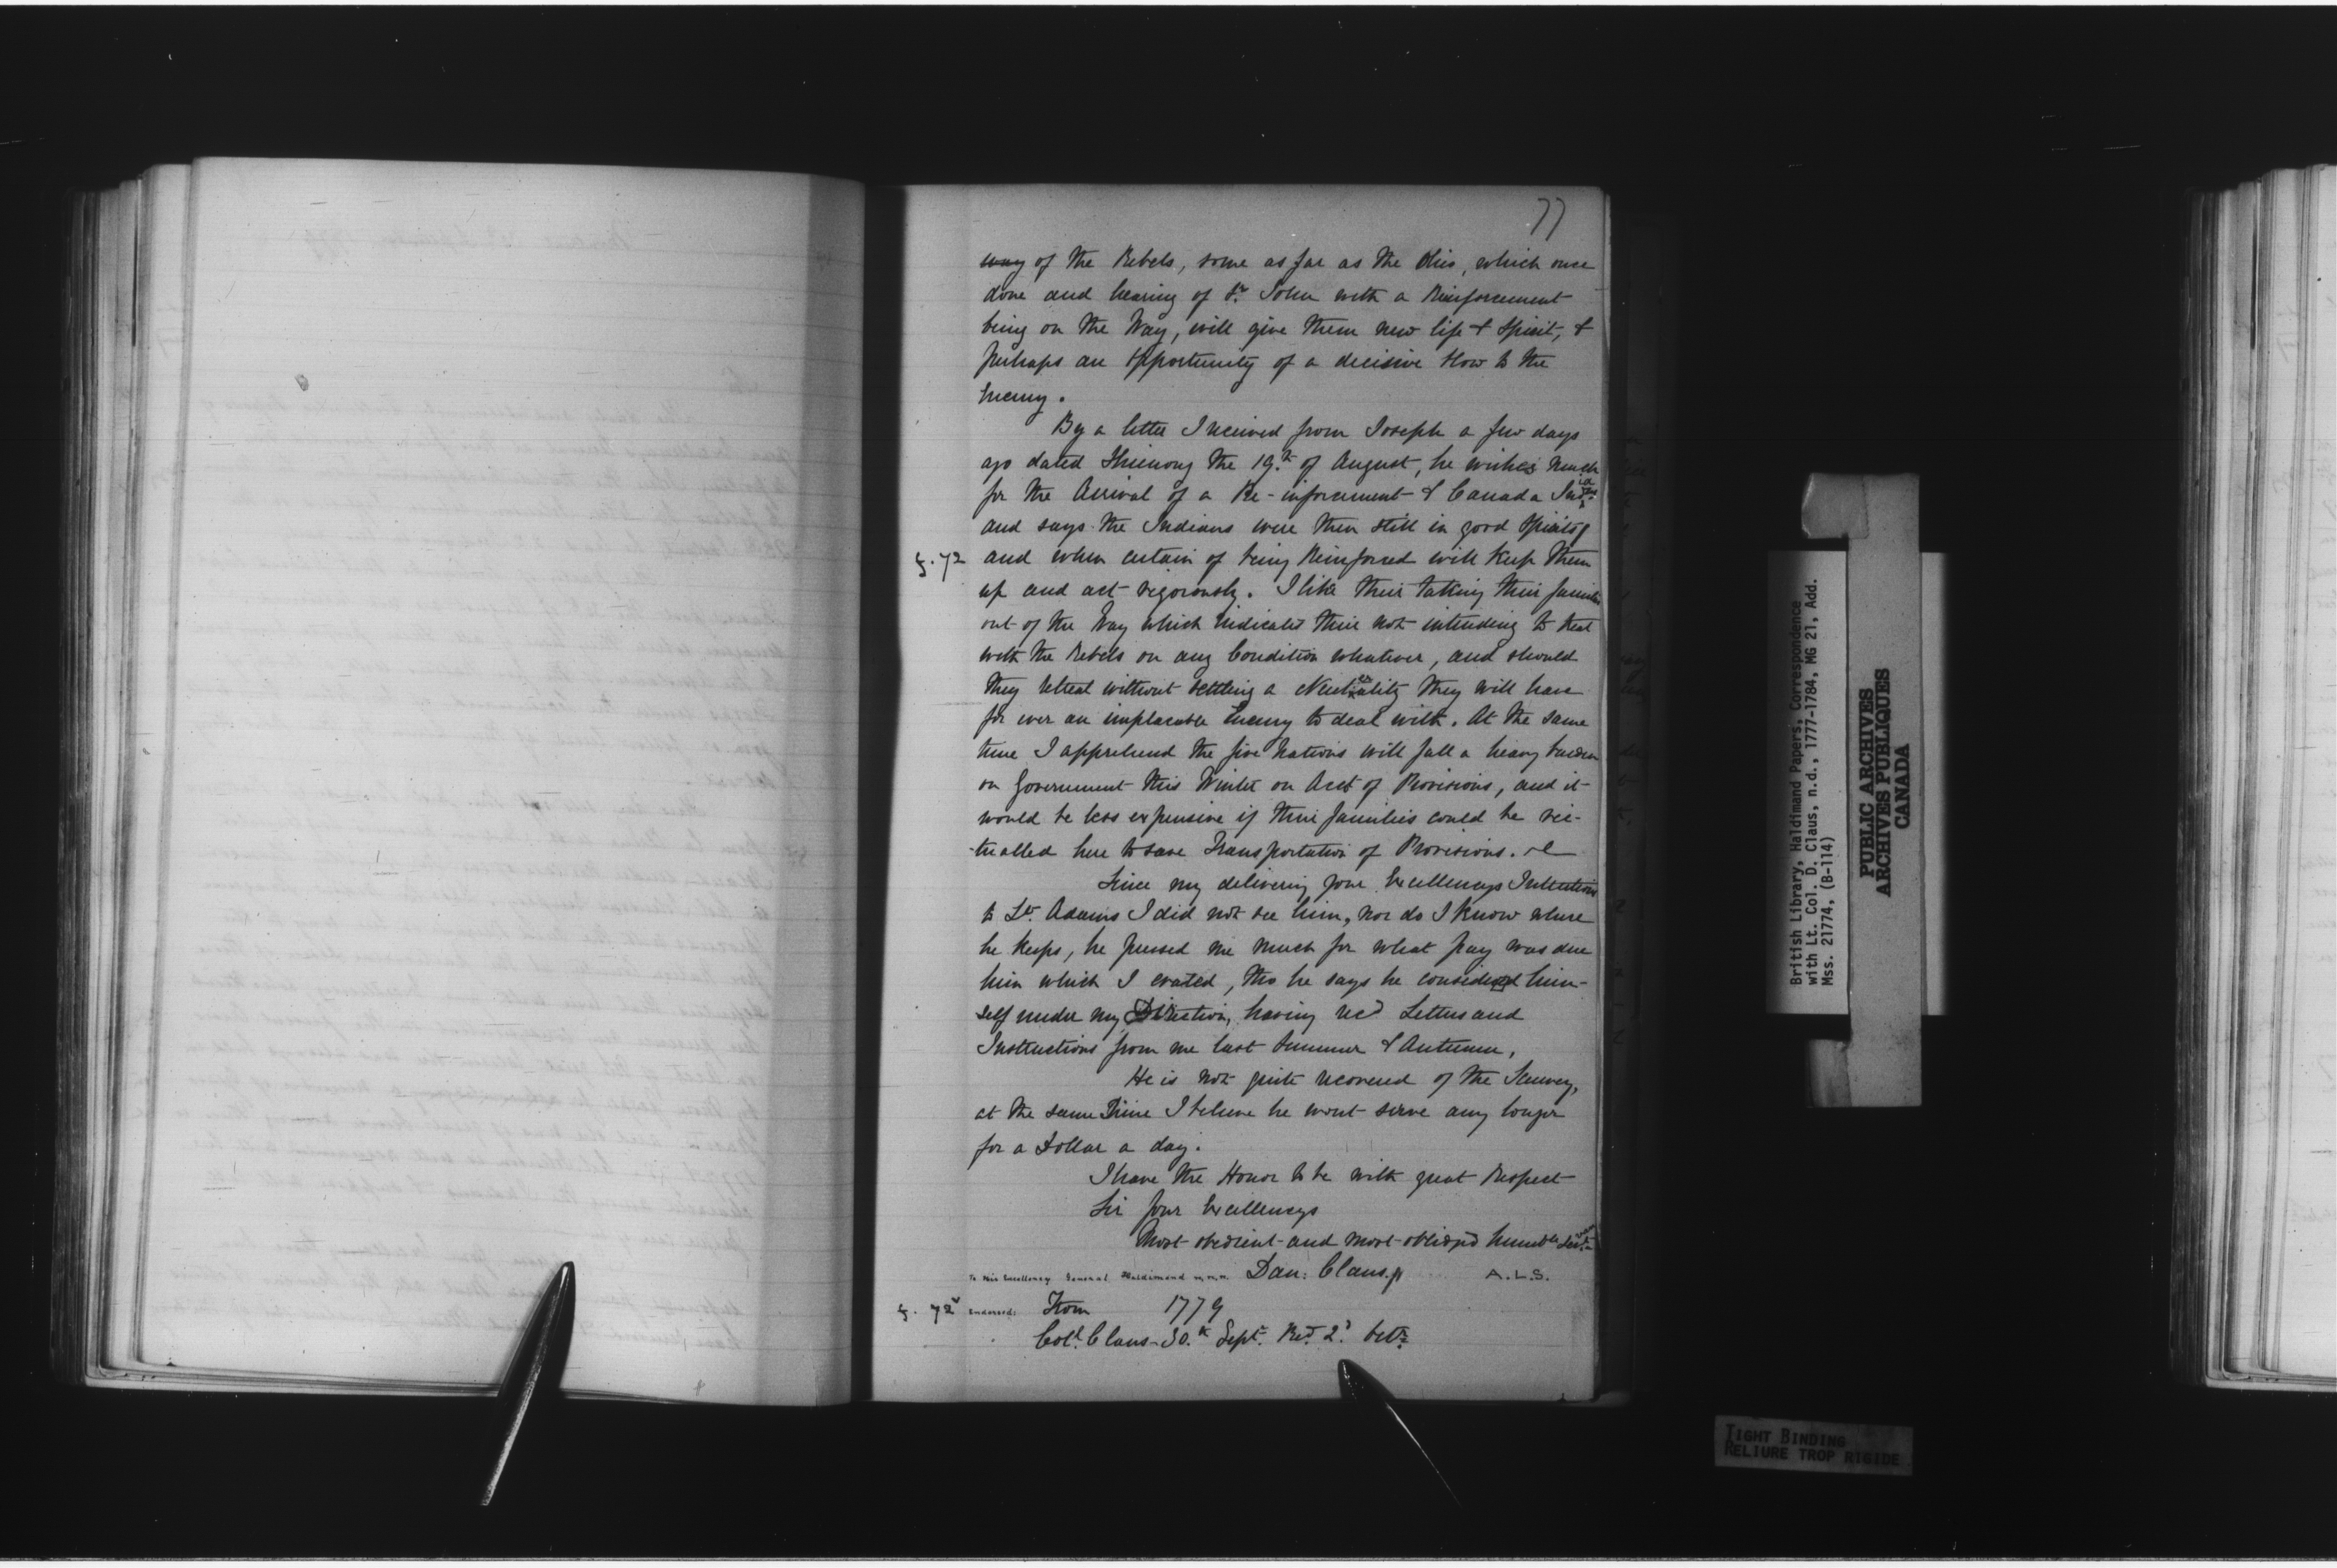 77
way of the Rebels, some as far as the Ohio, which once
done and hearing of Sr. John with a Reinforcement
being on the Way, will give them new life & Spirit, &
perhaps an opportunity of a decisive blow to the
Enemy.
By a letter I received from Joseph a few days
ago dated the 19.th of August, he wishes much
for the Arrival of a Re-inforcement & Canada Indians
and says the Indians were then still in good Spirits,
f. 72 and when certain of being Reinforced will keep them
up and act vigorously. I like their taking their families
out of the Way which indicates their not intending to treat
with the Rebels on any Condition whatever, and should
they retreat without settling a Neutrality they will have
for ever an implacable Enemy to deal with. At the same
time I apprehend the five Nations will fall a heavy burden
on Government this Winter on Acct of Provisions, and it
would be less expensive if their families could be vic-
-tualled here to save Transportation of Provisions.
Since my delivering your Excellencys Intentions
to Lt. Adams I did not see him, nor do I know where
he keeps, he pressed me much for what pay was due
him which I evaded, tho he says he considered him-
self under my Direction, having recd Letters and
Instructions from me last Summer & Autumn.
He is not quite recovered of the Scurvey,
at the same Time I believe he wont serve any longer
for a Dollar a day.
I have the Honor to be with great Respect
Sir Your Excellencys
Most obedient and most obliged humble Servt.
To His Excellency General Haldimand Dan: Claus. A.L.S.
f. 72v Endorsed: From 1779
Coll. Claus 30.th Sept. Recd. 2d. Octr.
British Library, Haldimand Papers, Correspondence
with Lt. Col. D. Claus, n.d., 1777-1784, MG 21, Add.
Mss. 21774, (B-114)
PUBLIC ARCHIVES
ARCHIVES PUBLIQUES
CANADA
TIGHT BINDING
RELIURE TROP RIGIDE